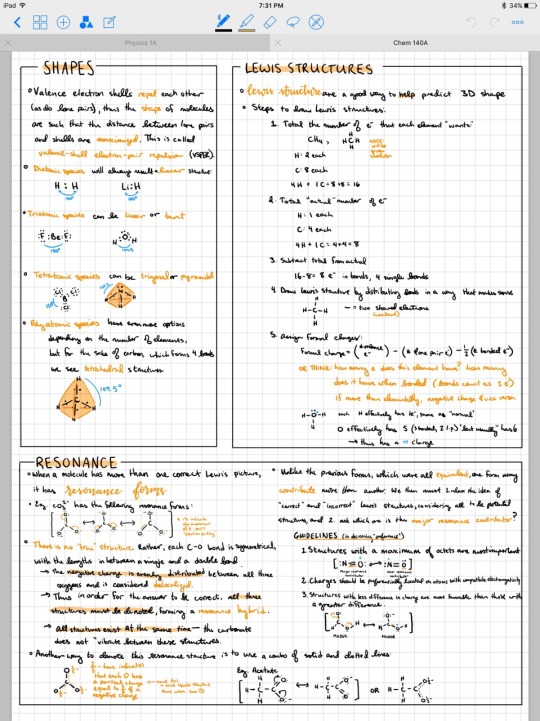 iPad
7:31 PM
34%
Physics 1A
Chem 140A
SHAPES
• Valence electron shells repel each other
(as do lone pairs), thus the shape of molecules
are such that the distance between lone pairs
and shells are maximized. This is called
valence-shell electron-pair repulsion (VSEPR).
• Diatomic species will always result a linear structure
H : H Li:H
180° 180°
• Triatomic species can be linear or bent
:F:Be:F: H:O:H
180°
• Tetratomic species can be trigonal or pyramidal
• Polyatomic species have even more options
depending on the number of elements,
but for the sake of carbon which forms 4 bonds
we see tetrahedral structures
109.5°
LEWIS STRUCTURES
• lewis structures are a good way to help predict 3D shape
• Steps to draw Lewis structures:
1. Total the number of e⁻ that each element "wants"
CH₄,
H: 2 each
C: 8 each
4H + 1C = 8+8 = 16
2. Total "actual" number of e⁻
H: 1 each
C: 4 each
4H + 1C = 4+4 = 8
3. Subtract total from actual
16-8 = 8 e⁻ in bonds, 4 single bonds
4. Draw lewis structure by distributing bonds in a way that makes sense
H-C-H
- = two shared electrons
(covalent)
5. Assign Formal Charges:
Formal charge = (# valence e⁻) - (# lone pair e⁻) - ½ (# bonded e⁻)
OR THINK: how many e does this element have? how many
does it have when bonded (bonds count as 1 e)
If more than elementally, negative charge & vice versa
H-O-H
H
each H effectively has 1e⁻, same as "normal"
O effectively has 5 (3 bonds, 2 l.p.) but usually has 6
→ thus has a +1 charge
RESONANCE
• When a molecule has more than one correct Lewis picture,
it has resonance forms
• Eg. CO₃²⁻ has the following resonance forms:
• There is no "true" structure. Rather, each C-O bond is symmetrical,
with the lengths in between a single and a double bond
→ the negative charge is evenly distributed between all three
oxygens and is considered delocalized.
→ Thus in order for the answer to be correct, all three
structures must be denoted, forming a resonance hybrid.
→ All structures exist at the same time — the carbonate
does not "vibrate between these structures.
• Another way to denote this resonance structure is to use a combo of solid and dotted lines:
⅔- here indicates
that each O has
a partial charge
equal to ⅔ of a
negative charge
• Unlike the previous forms, which were all equivalent, one form may
contribute more than another. We then must broken the idea of
"correct" and "incorrect" lewis structures, considering all to be potential
structures, and 2 ask which one is the major resonance contributor?
GUIDELINES
1. Structures with a maximum of octets are most important
2. Charges should be preferentially located on atoms with compatible electronegativity
3. Structures with less difference in charge are more favorable than those with
a greater difference.
MAJOR
MINOR
Eg. Acetate
OR